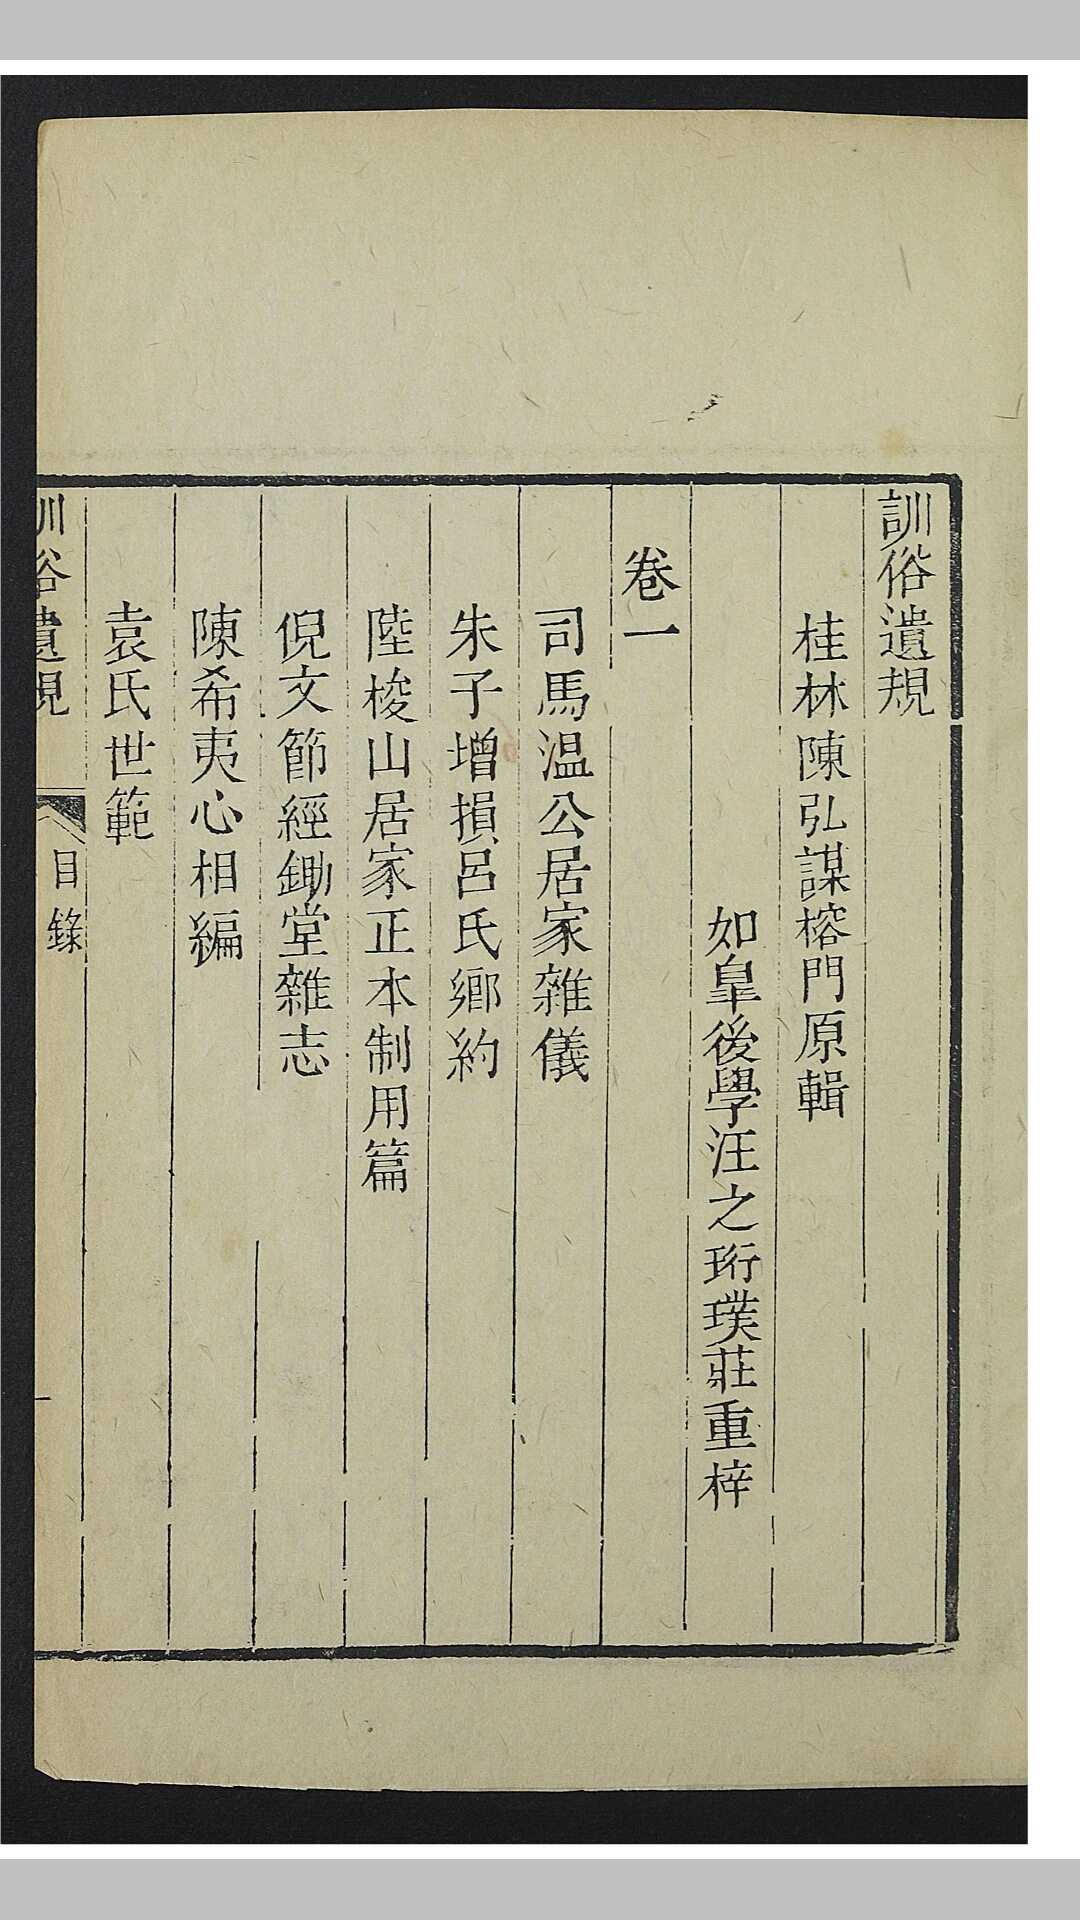 訓俗遺規
桂林陳弘謀榕門原輯
如皐後學汪之珩璞莊重梓
卷一
司馬温公居家雜儀
朱子增損呂氏鄉約
陸梭山居家正本制用篇
倪文節經鋤堂雜志
陳希夷心相編
袁氏世範
訓俗遺規
目錄
一